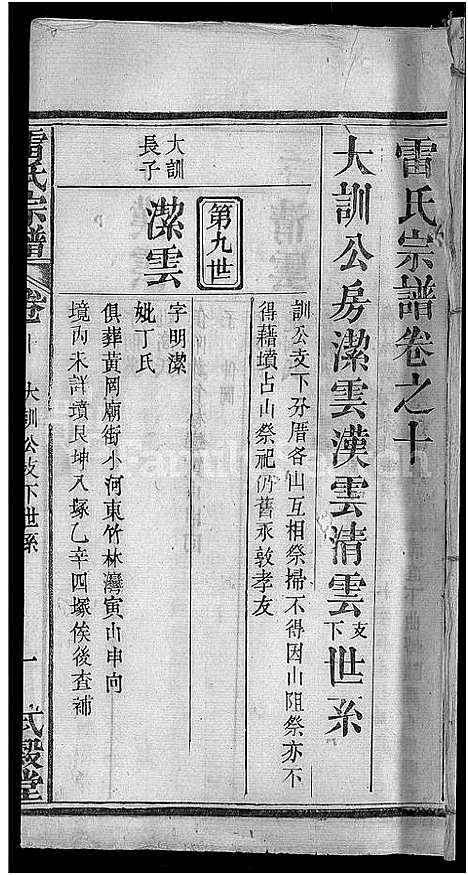 雷氏宗譜卷之十
大訓公房潔雲漢雲清雲支下世系
訓公支下分厝各山互相祭掃不得因山阻祭亦不
得藉墳占山祭祀仍舊永敦孝友
第九世
大訓
長子
潔雲
字明潔
妣丁氏
俱葬黃岡廟街小河東竹林灣寅山申向
境內未詳墳艮坤八塚乙辛四塚俟後查補
雷氏宗譜
卷十
大訓公支下世系
一
式穀堂